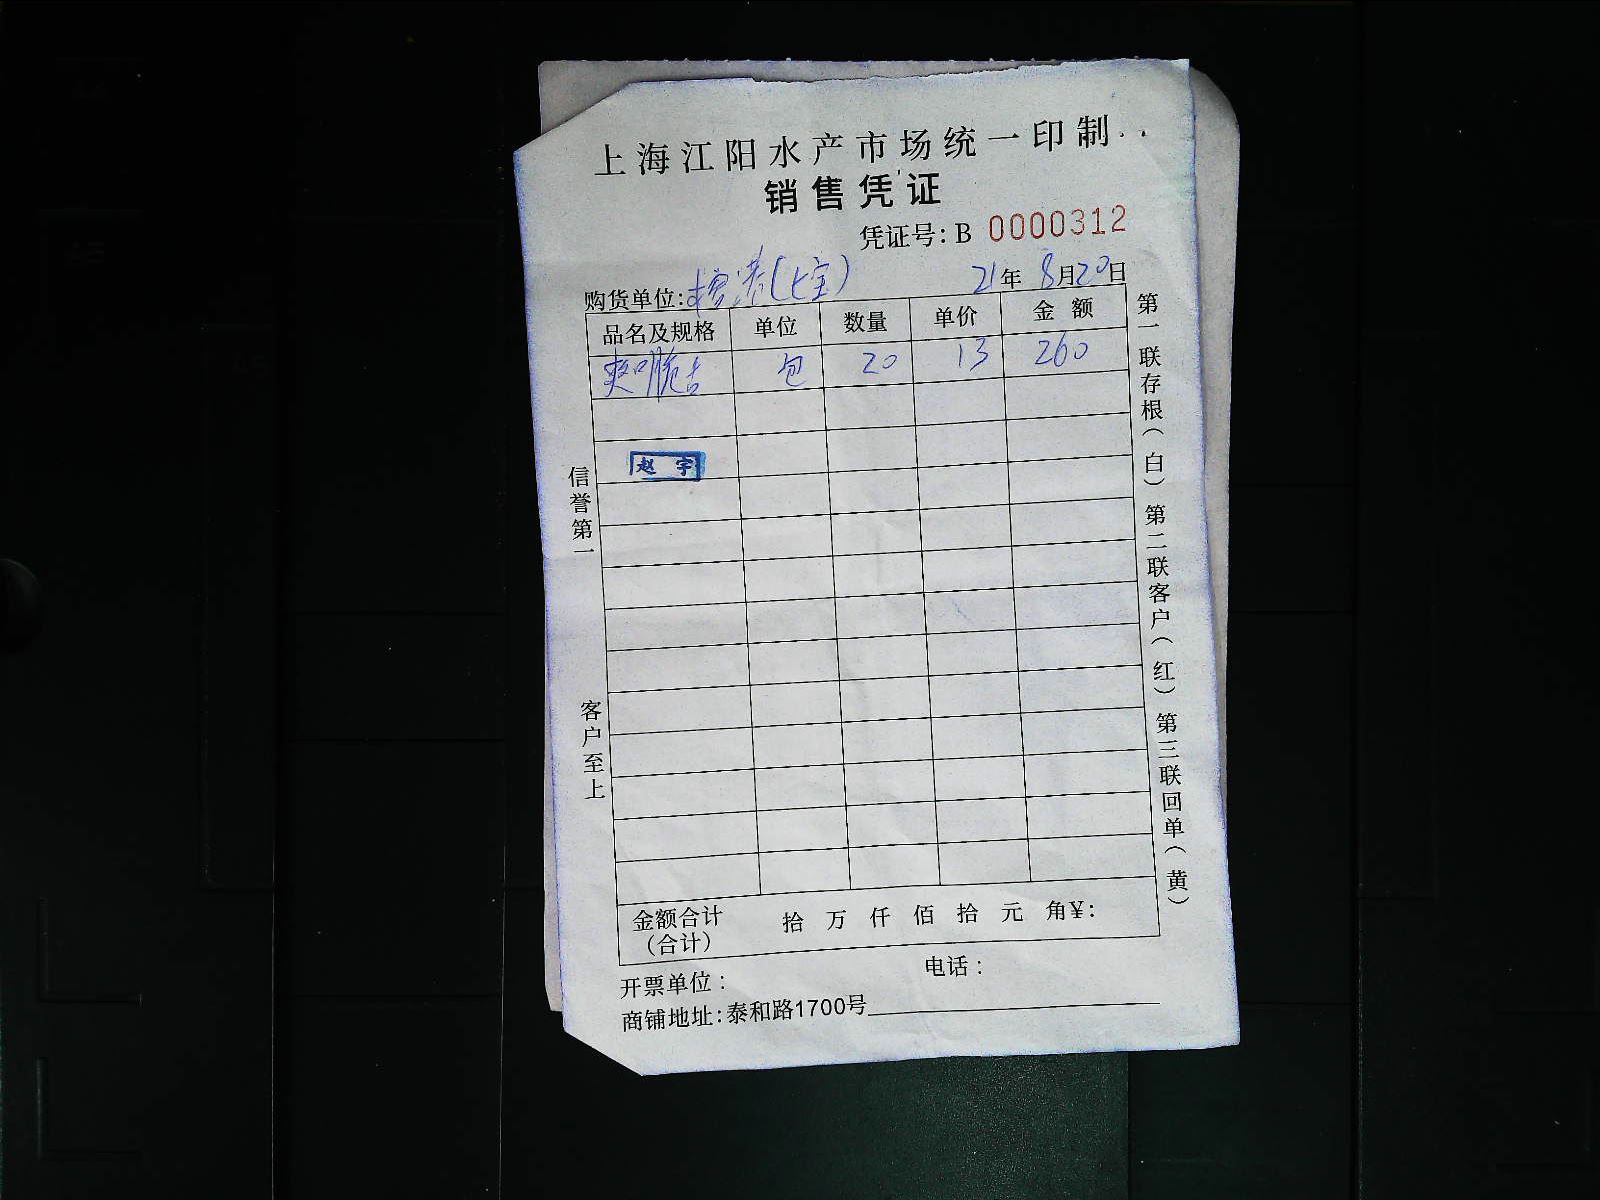 上海江阳水产市场统一印制
销售凭证
凭证号: B 0000312
购货单位: 港(七宝) 21年 8月20日
品名及规格 单位 数量 单价 金额
爽口脆 包 20 13 260
赵宇
信誉第一
客户至上
第一联存根(白) 第二联客户(红) 第三联回单(黄)
金额合计 拾 万 仟 佰 拾 元 角¥:
(合计)
开票单位: 电话:
商铺地址: 泰和路1700号